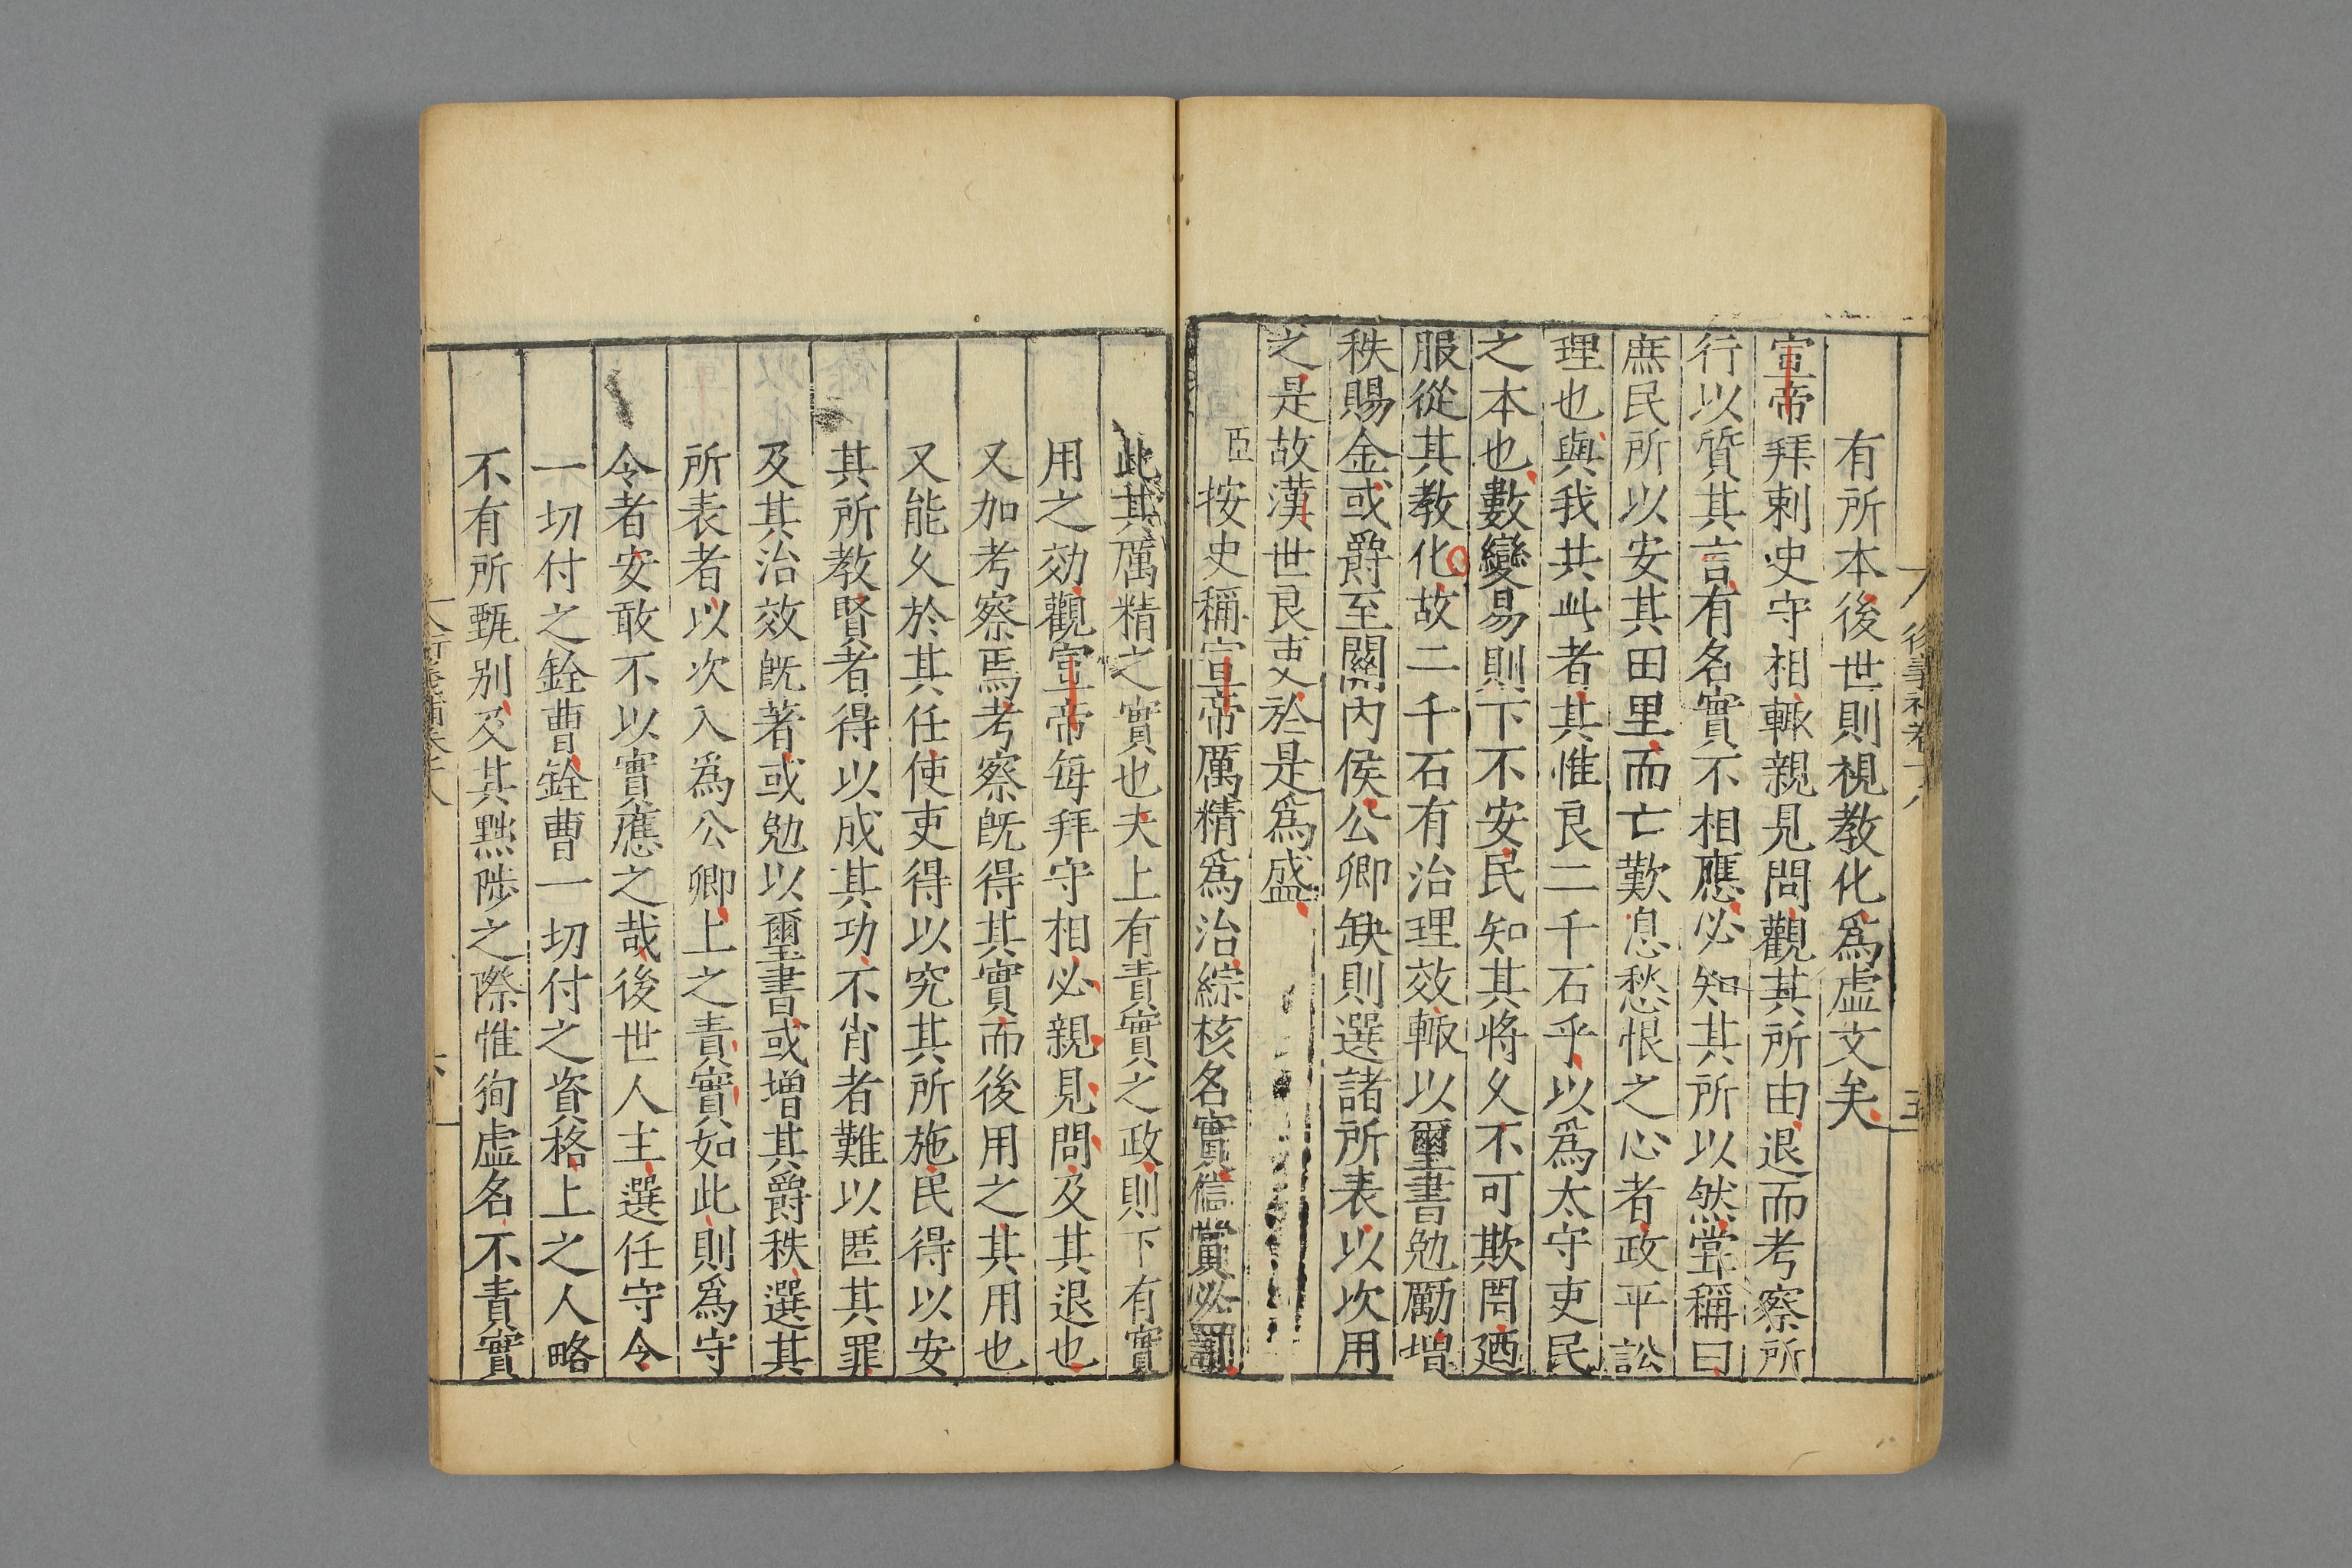 有所本後世則視教化爲虛文矣
宣帝拜刺史守相輙親見問觀其所由退而考察所
行以質其言有名實不相應必知其所以然常稱曰
庶民所以安其田里而亡歎息愁恨之心者政平訟
理也與我共此者其惟良二千石乎以爲太守吏民
之本也數變易則下不安民知其將久不可欺罔廼
服從其教化故二千石有治理效輙以璽書勉勵增
秩賜金或爵至關內侯公卿缺則選諸所表以次用
之是故漢世良吏於是爲盛
臣按史稱宣帝厲精爲治綜核名實信賞必罰
此其厲精之實也夫上有責實之政則下有實
用之効觀宣帝每拜守相必親見問及其退也
又加考察焉考察旣得其實而後用之其用也
又能久於其任使吏得以究其所施民得以安
其所教賢者得以成其功不肖者難以匿其罪
及其治效旣著或勉以璽書或增其爵秩選其
所表者以次入爲公卿上之責實如此則爲守
令者安敢不以實應之哉後世人主選任守令
一切付之銓曹銓曹一切付之資格上之人略
不有所甄别及其黜陟之際惟徇虛名不責實